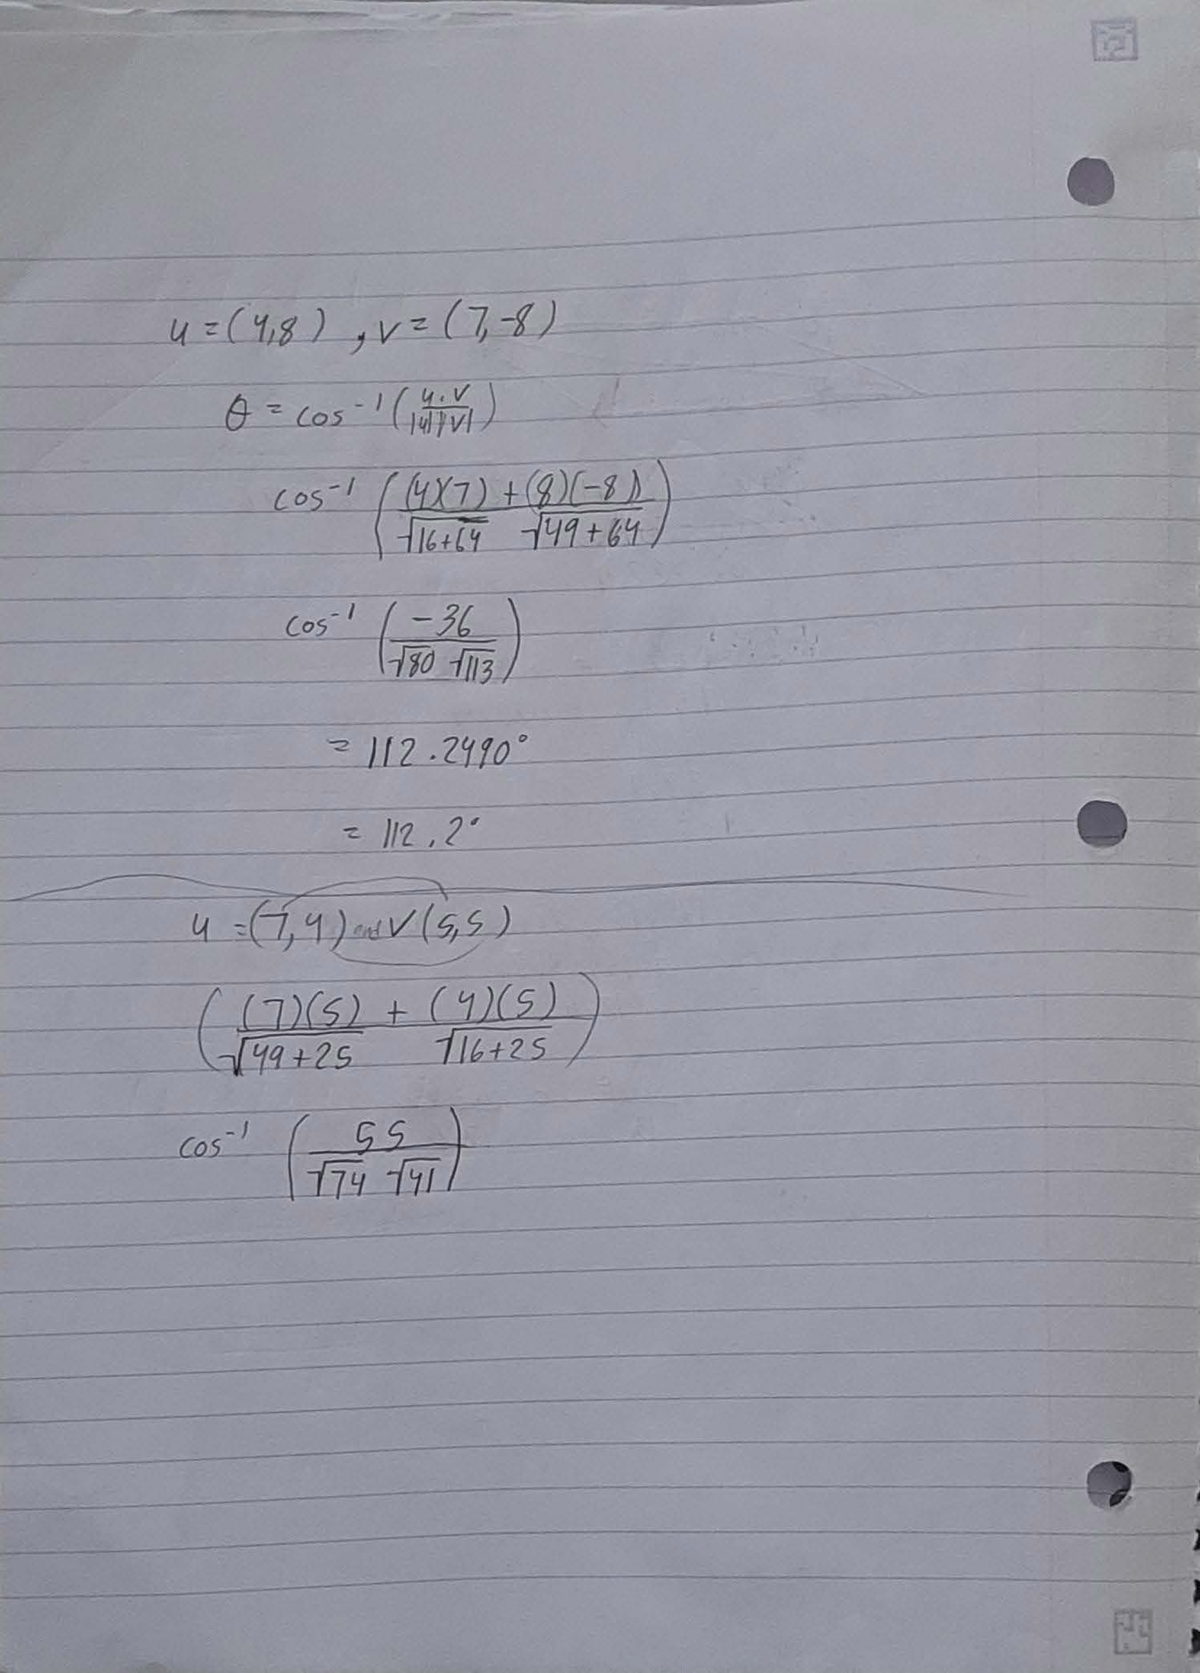 u = (4,8) , v = (7,-8)
θ = cos⁻¹ (u·v / |u||v|)
cos⁻¹ ((4)(7) + (8)(-8) / √16+64 √49+64)
cos⁻¹ (-36 / √80 √113)
= 112.2490°
= 112.2°
u = (7,4) and v (5,5)
((7)(5) + (4)(5) / √49+25 √16+25)
cos⁻¹ (55 / √74 √41)